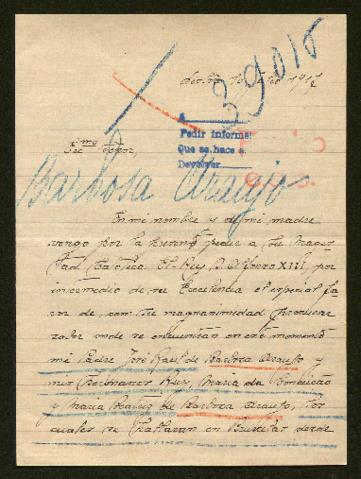 39015
1917
A
Pedir informes
Que se hace a
Devolver
Exmo Señor,
Barbosa Araujo
En mi nombre y de mi madre
vengo por la presente pedir a Su Mages-
tad Catolica El Rey D. Alfonso XIII, por
intermedio de su Excelencia el especial fa
vor de con su magnanimidad
onde se encuentran en este momento
mi Padre José Raul de Barbosa Araujo y
mis Hermanos Ruy, Maria da Conceição
y Maria de Barbosa Araujo, los
cuales se hallavan en Bruxelas desde